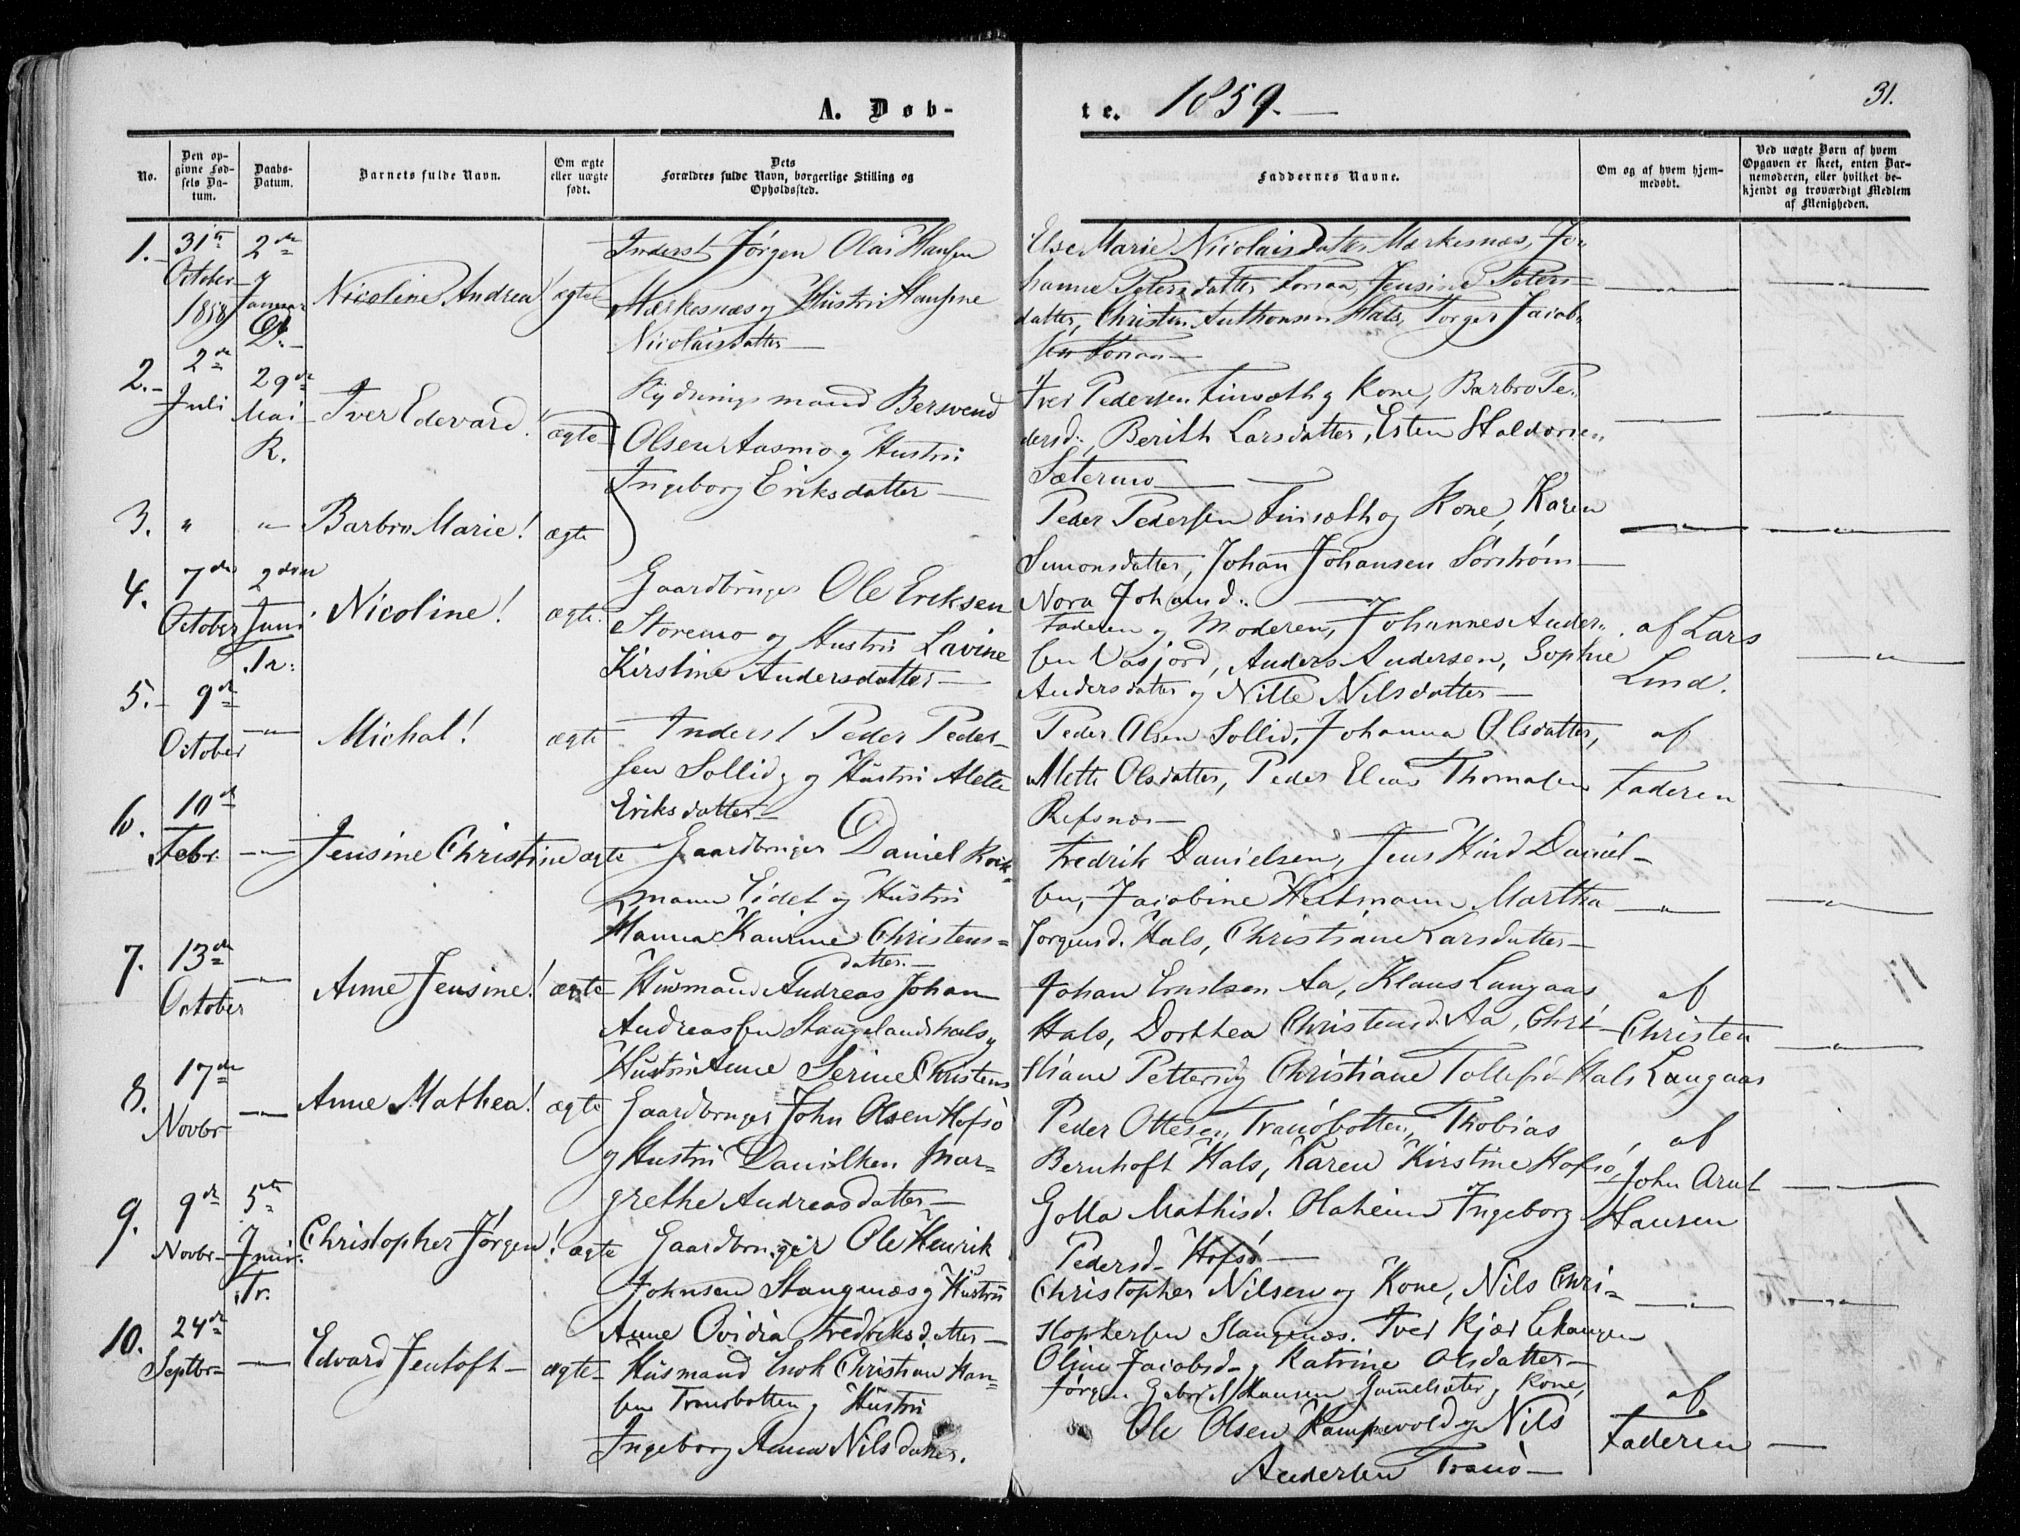 A. Døb-
te. 1859.
31.
No.
Den op-
givne Fød-
sels Da-
tum.
Daabs-
Datum.
Barnets fulde Navn.
Om ægte
eller uægte
født.
Dets
Forældres fulde Navn, borgerlige Stilling og
Opholdssted.
Faddernes Navne.
Om og af hvem hjem-
medøbt.
Ved uægte Børn af hvem
Opgaven er skeet, enten Bar-
nemoderen, eller hvilket be-
kjendt og troværdigt Medlem
af Menigheden.
1.
31te
October
1858
2den
Januar
Nicoline Andrea
ægte
Inderst Jørgen Olai Hansen
Mærkesnæs og Hustru Hansine
Nicolaisdatter
Else Marie Nicolaisdatter Mærkesnæs, Jo-
hanne Petersdatter Forsaa, Jensine Peters-
datter, Christen Anthonsen Hals, Torger Jacob-
sen Forsaa
2.
2de
Juli
29de
Mai
R.
Iver Edevard!
ægte
Rydningsmand Bersvend
Olsen Aasmo og Hustru
Ingeborg Eriksdatter
Iver Pedersen Finsæth og Kone, Barbro Pe-
dersd., Berith Larsdatter, Esten Haldorsen
Sætermo
3.
"
"
Barbro Marie!
ægte
Peder Pedersen Finsæth og Kone, Karen
Simonsdatter, Johan Johansen Sørstrøm
Nora Johansd.
4.
7de
October
2den
Juni
Tr.
Nicoline!
ægte
Gaardbruger Ole Eriksen
Storemo og Hustru Lavine
Kirstine Andersdatter
Faderen og Moderen, Johannes Ander-
sen Vasjord, Anders Andersen, Sophie
Andersdatter og Nille Nilsdatter
af Lars
Lind.
5.
9de
October
Michal!
ægte
Inderst Peder Peder-
sen Sollid og Hustru Alette
Eriksdatter
Peder Olsen Sollid, Johanna Olsdatter,
Mette Olsdatter, Peder Elias Thomasen
Refsnæs
af
Faderen
6.
10de
Febr.
Jensine Christine
ægte
Gaardbruger Daniel
Eidet og Hustru
Hanna Christens-
datter.
Fredrik Danielsen, Jens Hind Daniel-
sen, Jacobine Heitmann, Martha
Jørgensd. Hals, Christiane Larsdatter
7.
13de
October
Anne Jensine!
ægte
Husmand Andreas Johan
Andreassen Stangelandshals og
Hustru Anne Serine Christens
Johan Erntsen Aa, Klaus Langaas
Hals, Dorthea Christensd. Aa, Chri-
stiane Pettersd. og Christiane Tollefsd. Hals
af
Christen
Langaas
8.
17de
Novbr
Anne Mathea!
ægte
Gaardbruger John Olsen Hofsø
og Hustru Danilken Mar-
grethe Andreasdatter
Peder Ottesen Tranøbotten, Thobias
Bernhoft Hals, Karen Kirstine Hofsø,
Golla Mathisd. Olaheim Ingeborg
Pedersd. Hofsø
af
John Arnt
Hansen
9.
9de
Novbr
5te
Juni
Tr.
Christopher Jørgen!
ægte
Gaardbruger Ole Henrik
Johnsen Stangnæs og Hustru
Anne Ovidia Fredriksdatter
Christopher Nilsen og Kone, Nils Chri-
stophersen Stangenæs. Iver Kjær
Oline Jacobsd. og Katrine Olsdatter
10.
24de
Septbr
Edvard Jentoft
ægte
Husmand Enok Christian Han-
sen Tranøbotten og Hustru
Ingeborg Anna Nilsdatter.
Jørgen Gabriel Hansen og Kone,
Ole Olsen Kampevold og Nils
Andersen Tranø
af
Faderen